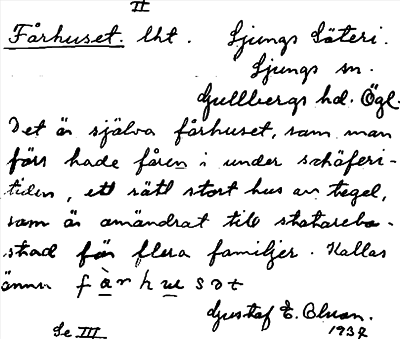 II
Fårhuset. lht. Ljungs Säteri.
Ljungs sn.
Gullbergs hd. Ögl.
Det är själva fårhuset, som man
förr hade fåren i under schäferi-
tiden, ett rätt stort hus av tegel,
som är omändrat till statarebo-
stad för flera familjer. Kallas
ännu fàrhusət
Gustaf E.
Se III 193